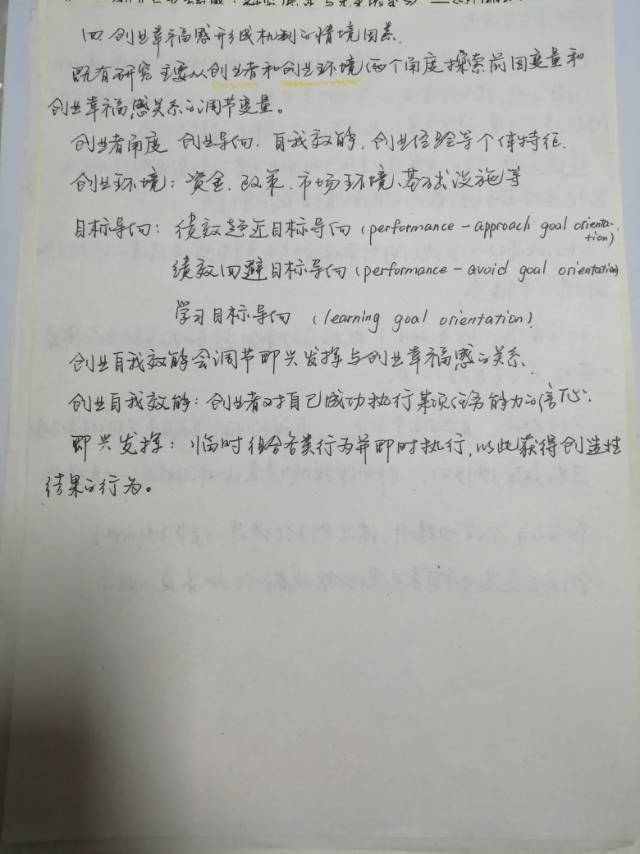 四、创业幸福感形成机制的情境因素.
既有研究主要从创业者和创业环境两个角度探索前因变量和
创业幸福感关系的调节变量。
创业者角度 创业导向. 自我效能, 创业经验等个体特征.
创业环境: 资金. 政策. 市场环境. 基础设施等
目标导向: 绩效趋近目标导向 (performance-approach goal orientation)
绩效回避目标导向 (performance-avoid goal orientation)
学习目标导向 (learning goal orientation)
创业自我效能会调节即兴发挥与创业幸福感的关系.
创业自我效能: 创业者对自己成功执行某项任务能力的信心.
即兴发挥: 临时组合各类行为并即时执行, 以此获得创造性
结果的行为。